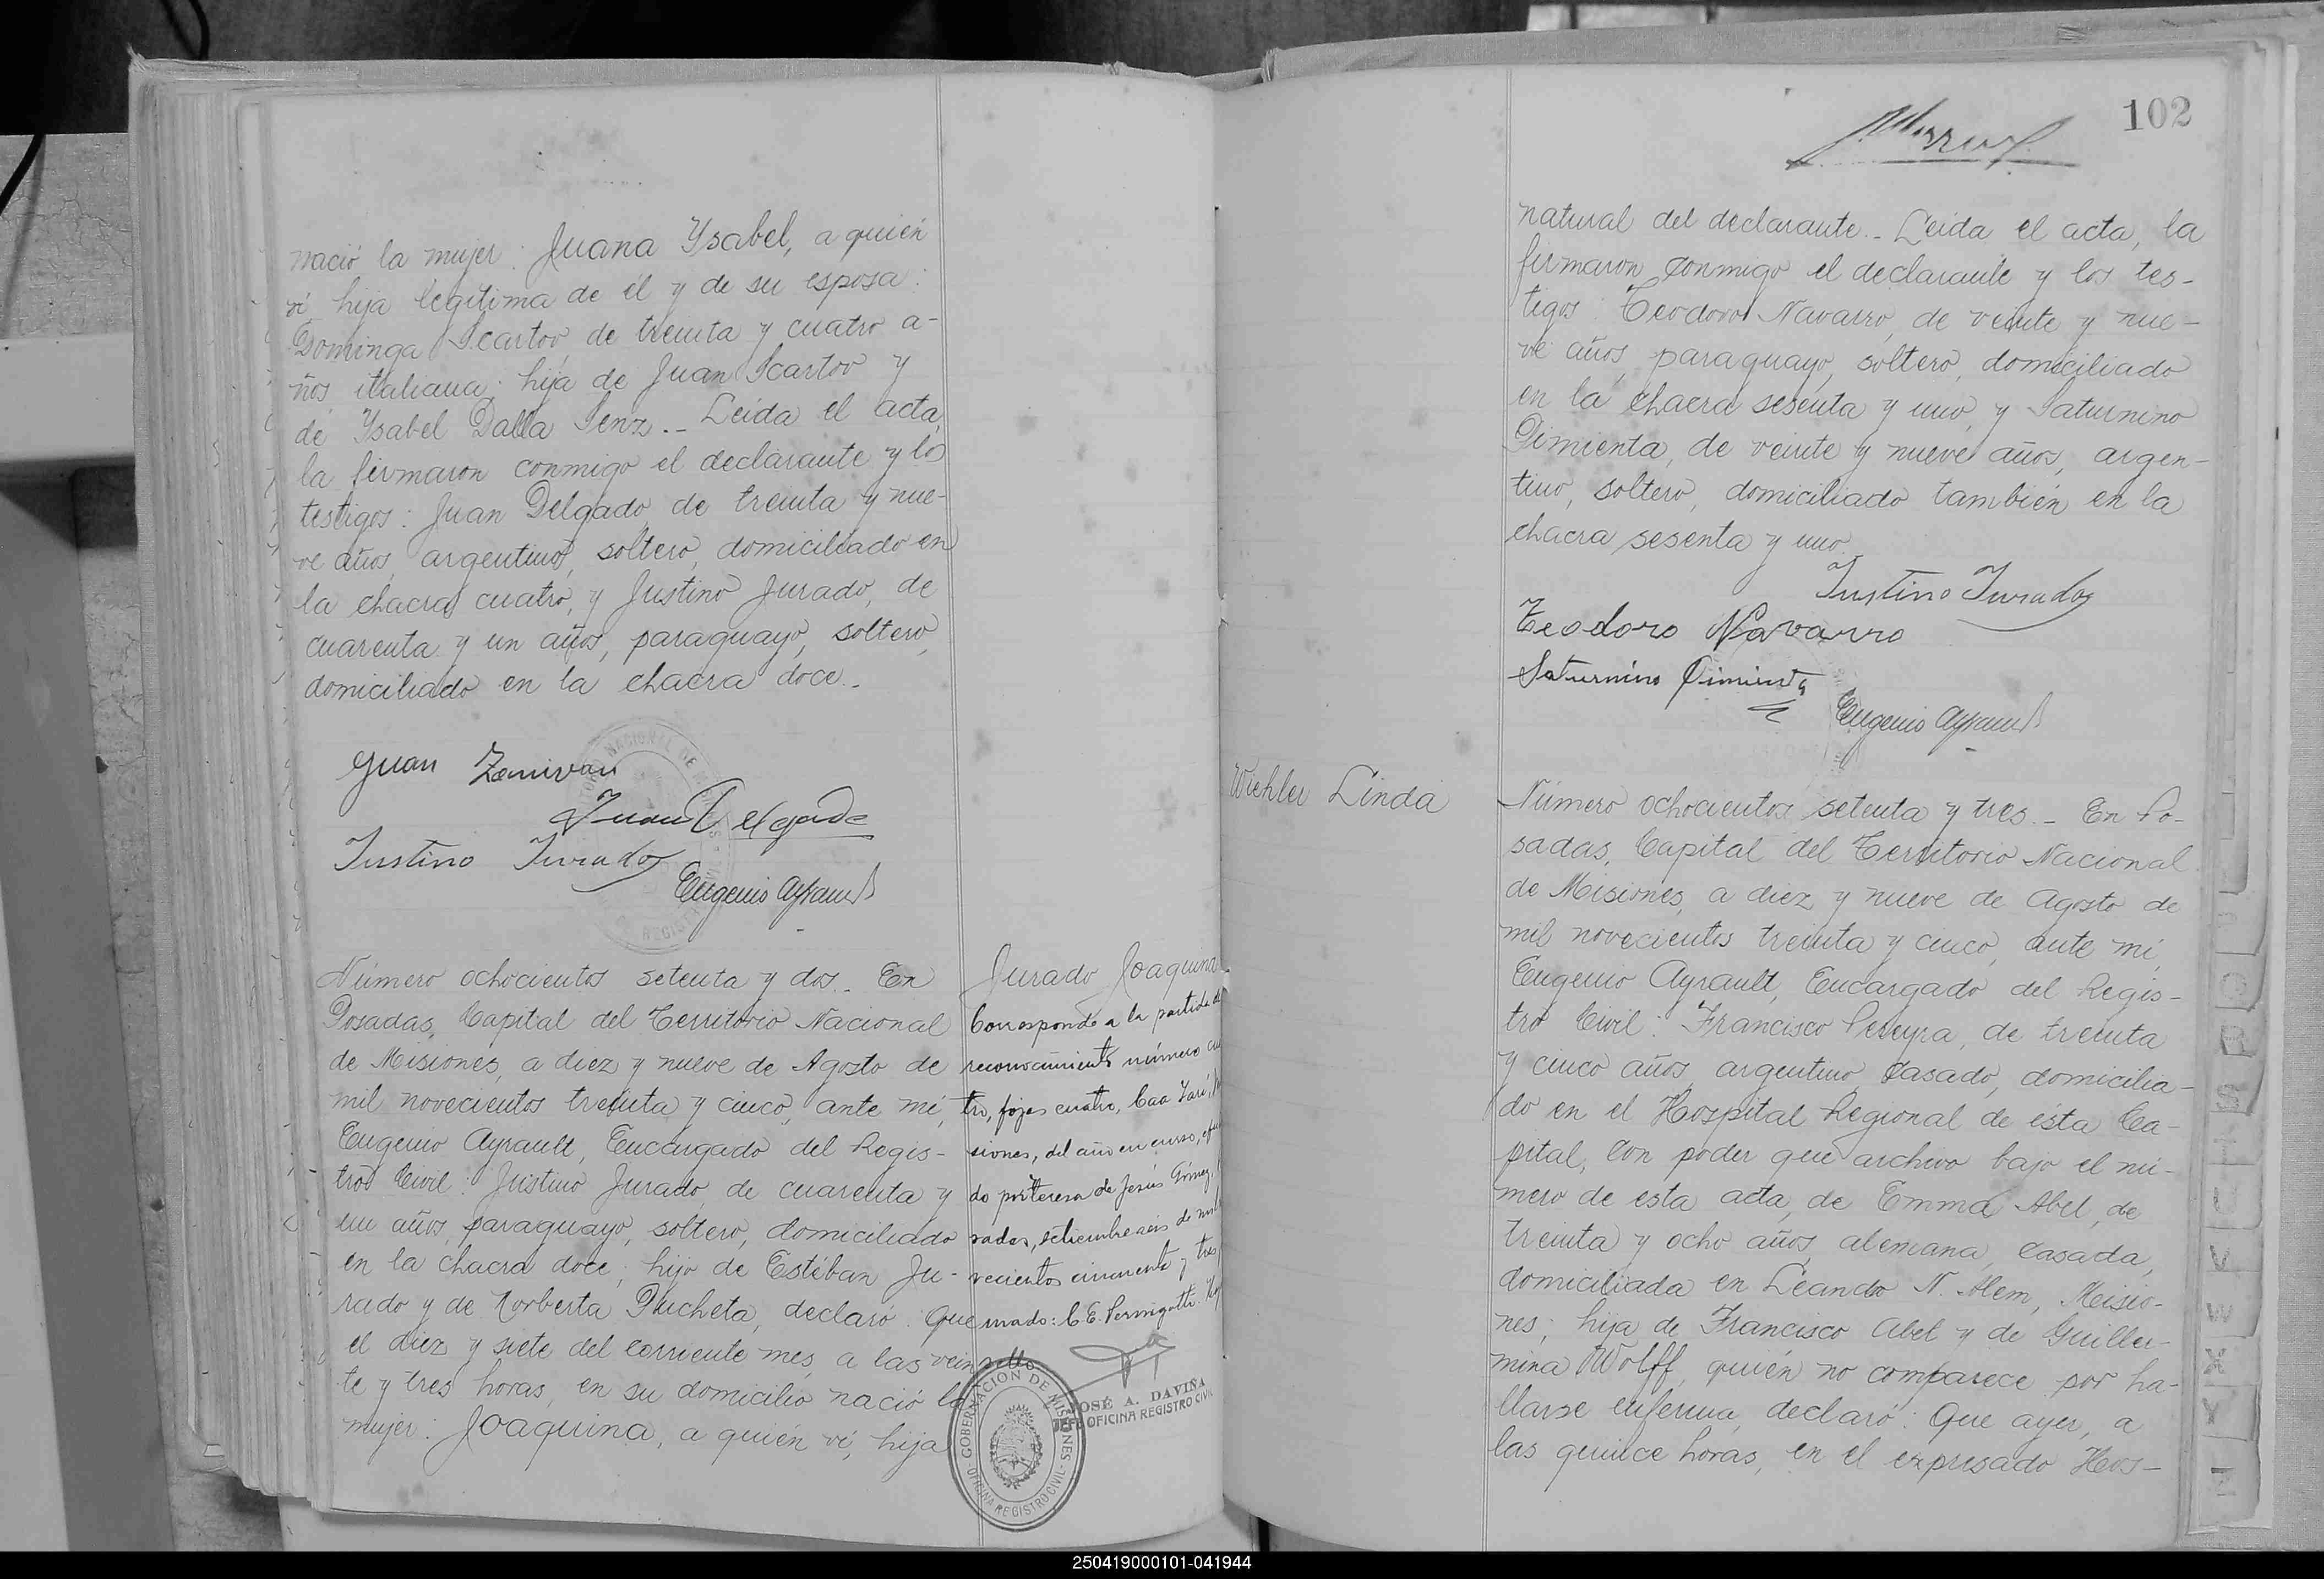 nació la mujer: Juana Ysabel, a quién
ví hija legítima de él y de su esposa:
Dominga Scartov de treinta y cuatro a-
ños italiana; hija de Juan Scartov y
de Ysabel Dalla Senz.- Leida el acta,
la firmaron conmigo el declarante y los
testigos: Juan Delgado, de treinta y nue-
ve años, argentino, soltero, domiciliado en
la chacra cuatro, y Justino Jurado, de
cuarenta y un años, paraguayo, soltero,
domiciliado en la chacra doce.-
Juan Zanivan
Juan Delgado
Justino Jurado
Eugenio Ayrault
Número ochocientos setenta y dos.- En
Posadas, Capital del Territorio Nacional
de Misiones, a diez y nueve de Agosto de
mil novecientos treinta y cinco, ante mí,
Eugenio Ayrault, Encargado del Regis-
tro Civil: Justino Jurado, de cuarenta y
un años, paraguayo, soltero, domiciliado
en la chacra doce; hijo de Estéban Ju-
rado y de Norberta Pucheta, declaró: Que
el diez y siete del corriente mes, a las vein
te y tres horas, en su domicilio nació la
mujer: Joaquina, a quién ví, hija
Jurado Joaquina
Corresponde a la partida de
reconocimiento número
tro, fojas cuatro, Caa Yarí,
siones, del año en curso,
do por Teresa de Jesús Gómez,
sadas, setiembre seis de mil
vecientos cincuenta y tres
mado: C. E. Pernigotti.
sello
GOBERNACION DE MISIONES
OFICINA REGISTRO CIVIL
JOSÉ A. DAVIÑA
JEFE OFICINA REGISTRO CIVIL
102
natural del declarante.- Leida el acta, la
firmaron conmigo el declarante y los tes-
tigos: Teodoro Navarro, de veinte y nue-
ve años, paraguayo, soltero, domiciliado
en la chacra sesenta y uno, y Saturnino
Pimienta, de veinte y nueve años, argen-
tino, soltero, domiciliado también en la
chacra sesenta y uno.
Justino Jurado
Teodoro Navarro
Saturnino Pimienta
Eugenio Ayrault
Wiehler Linda
Número ochocientos setenta y tres.- En Po-
sadas, Capital del Territorio Nacional
de Misiones, a diez y nueve de Agosto de
mil novecientos treinta y cinco, ante mí,
Eugenio Ayrault, Encargado del Regis-
tro Civil: Francisco Pereyra, de treinta
y cinco años, argentino, casado, domicilia-
do en el Hospital Regional de ésta Ca-
pital, con poder que archivo bajo el nú-
mero de esta acta, de Emma Abel, de
treinta y ocho años, alemana, casada,
domiciliada en Leandro N. Alem, Misio-
nes; hija de Francisco Abel y de Guiller-
mina Wolff, quién no comparece por ha-
llarse enferma, declaró: Que ayer, a
las quince horas, en el expresado Hos-
250419000101-041944